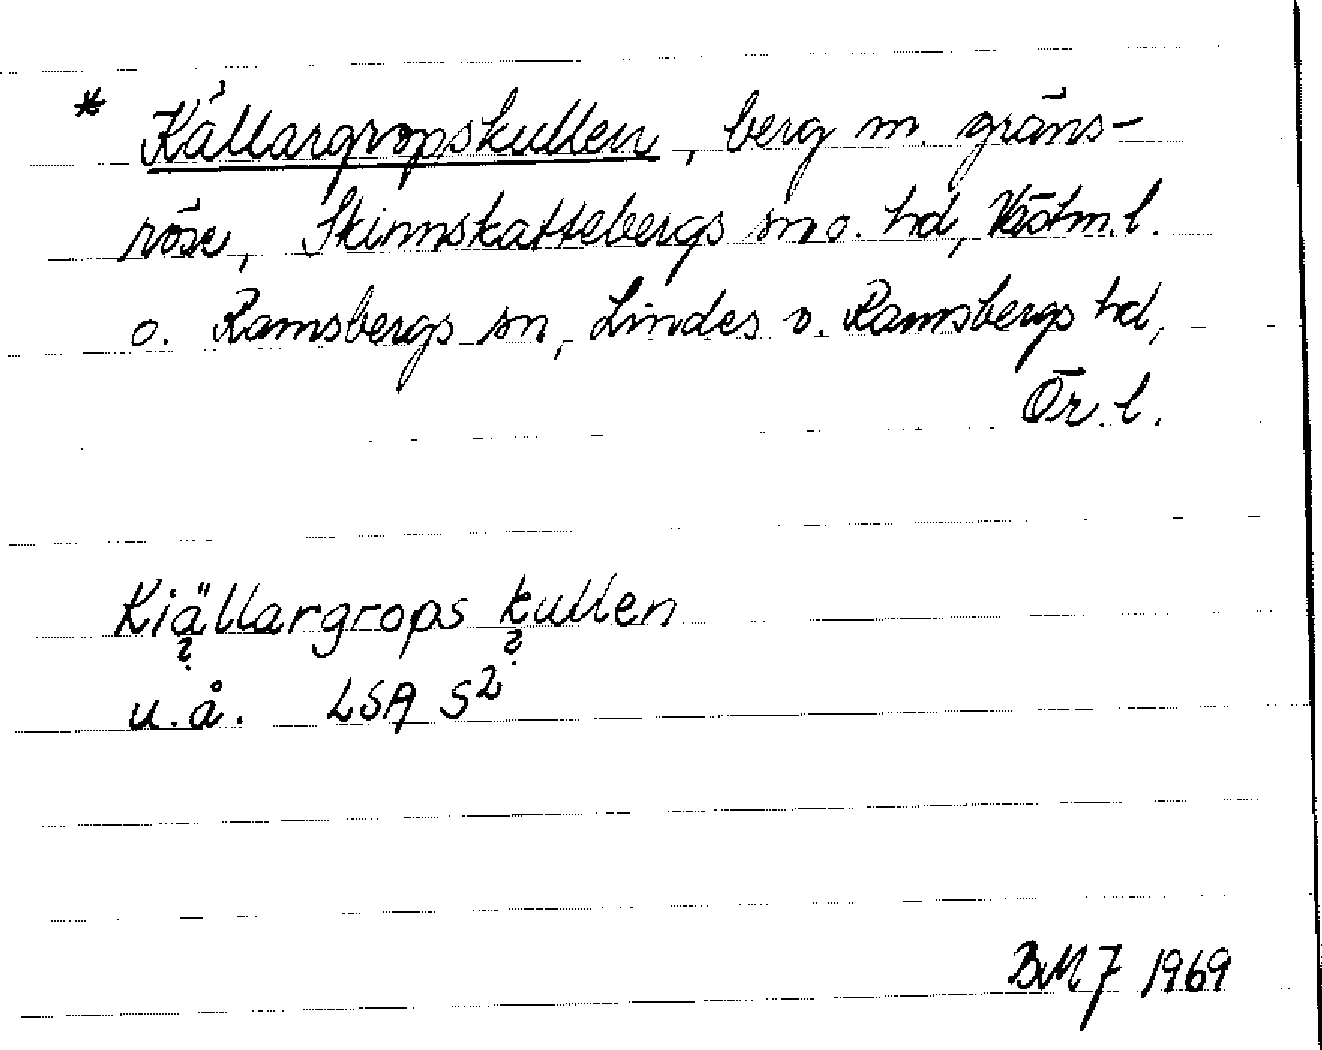 * Källargropskullen, berg m. gräns-
röse, Skinnskattebergs sn o. hd, Västm.l.
o. Ramsbergs sn, Lindes o. Ramsbergs hd,
Ör.l.
Kiällargrops kullen
? ?
u.å. LSA S2
BMJ 1969